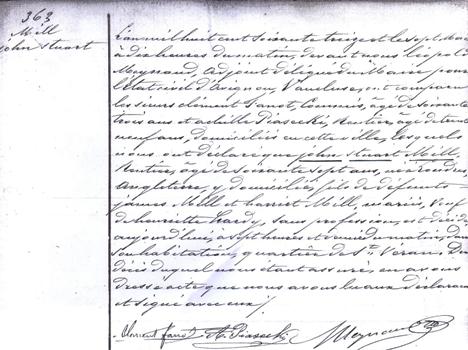 363
Mill
John Stuart
L'an mil huit cent soixante treize et le sept Mai
à dix heures du matin, devant nous Léopold
Meynaud, adjoint délégué du Maire pour
l'état civil d'Avignon, Vaucluse, ont comparu
les sieurs Clément Canot, Commis, âgé de soixante
trois ans et Achille Piasecki, Rentier, âgé de trente
neuf ans, domiciliés en cette ville, lesquels
nous ont déclaré que John Stuart Mill,
Rentier, âgé de soixante sept ans, né à Londres,
Angleterre, y domicilié, fils de défunts
James Mill et harriet Mill, mariés, Veuf
de henriette hardy, sans profession, est décédé
aujourd'hui, à sept heures et demie du matin, dans
son habitation, quartier de St. Véran. Du
décès duquel nous étant assuré, en avons
dressé acte que nous avons lu aux déclarants
et signé avec eux.
Clément A. Piasecki Meynaud